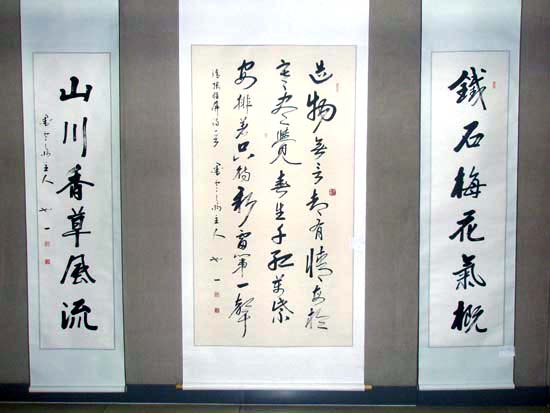 鐵石梅花氣概
造物無言却有情每於
寒盡覺春生千紅萬紫
安排著只待新雷第一聲
清張維屏詩一首 主人
山川香草風流
主人